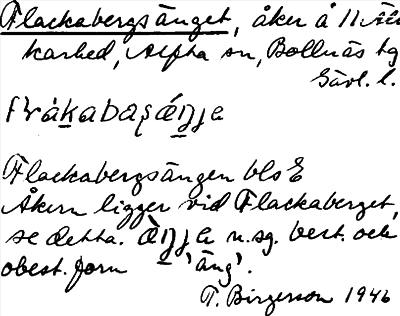 Flackabergsänget, åker å 11 Äl-
karhed, Alfta sn, Bollnäs tg
Gävl. l.
Flackabergsängen bls E
Åkern ligger vid Flackaberget,
se detta. n.sg. best. och
obest. form 'äng'.
T. Birgerson 1946